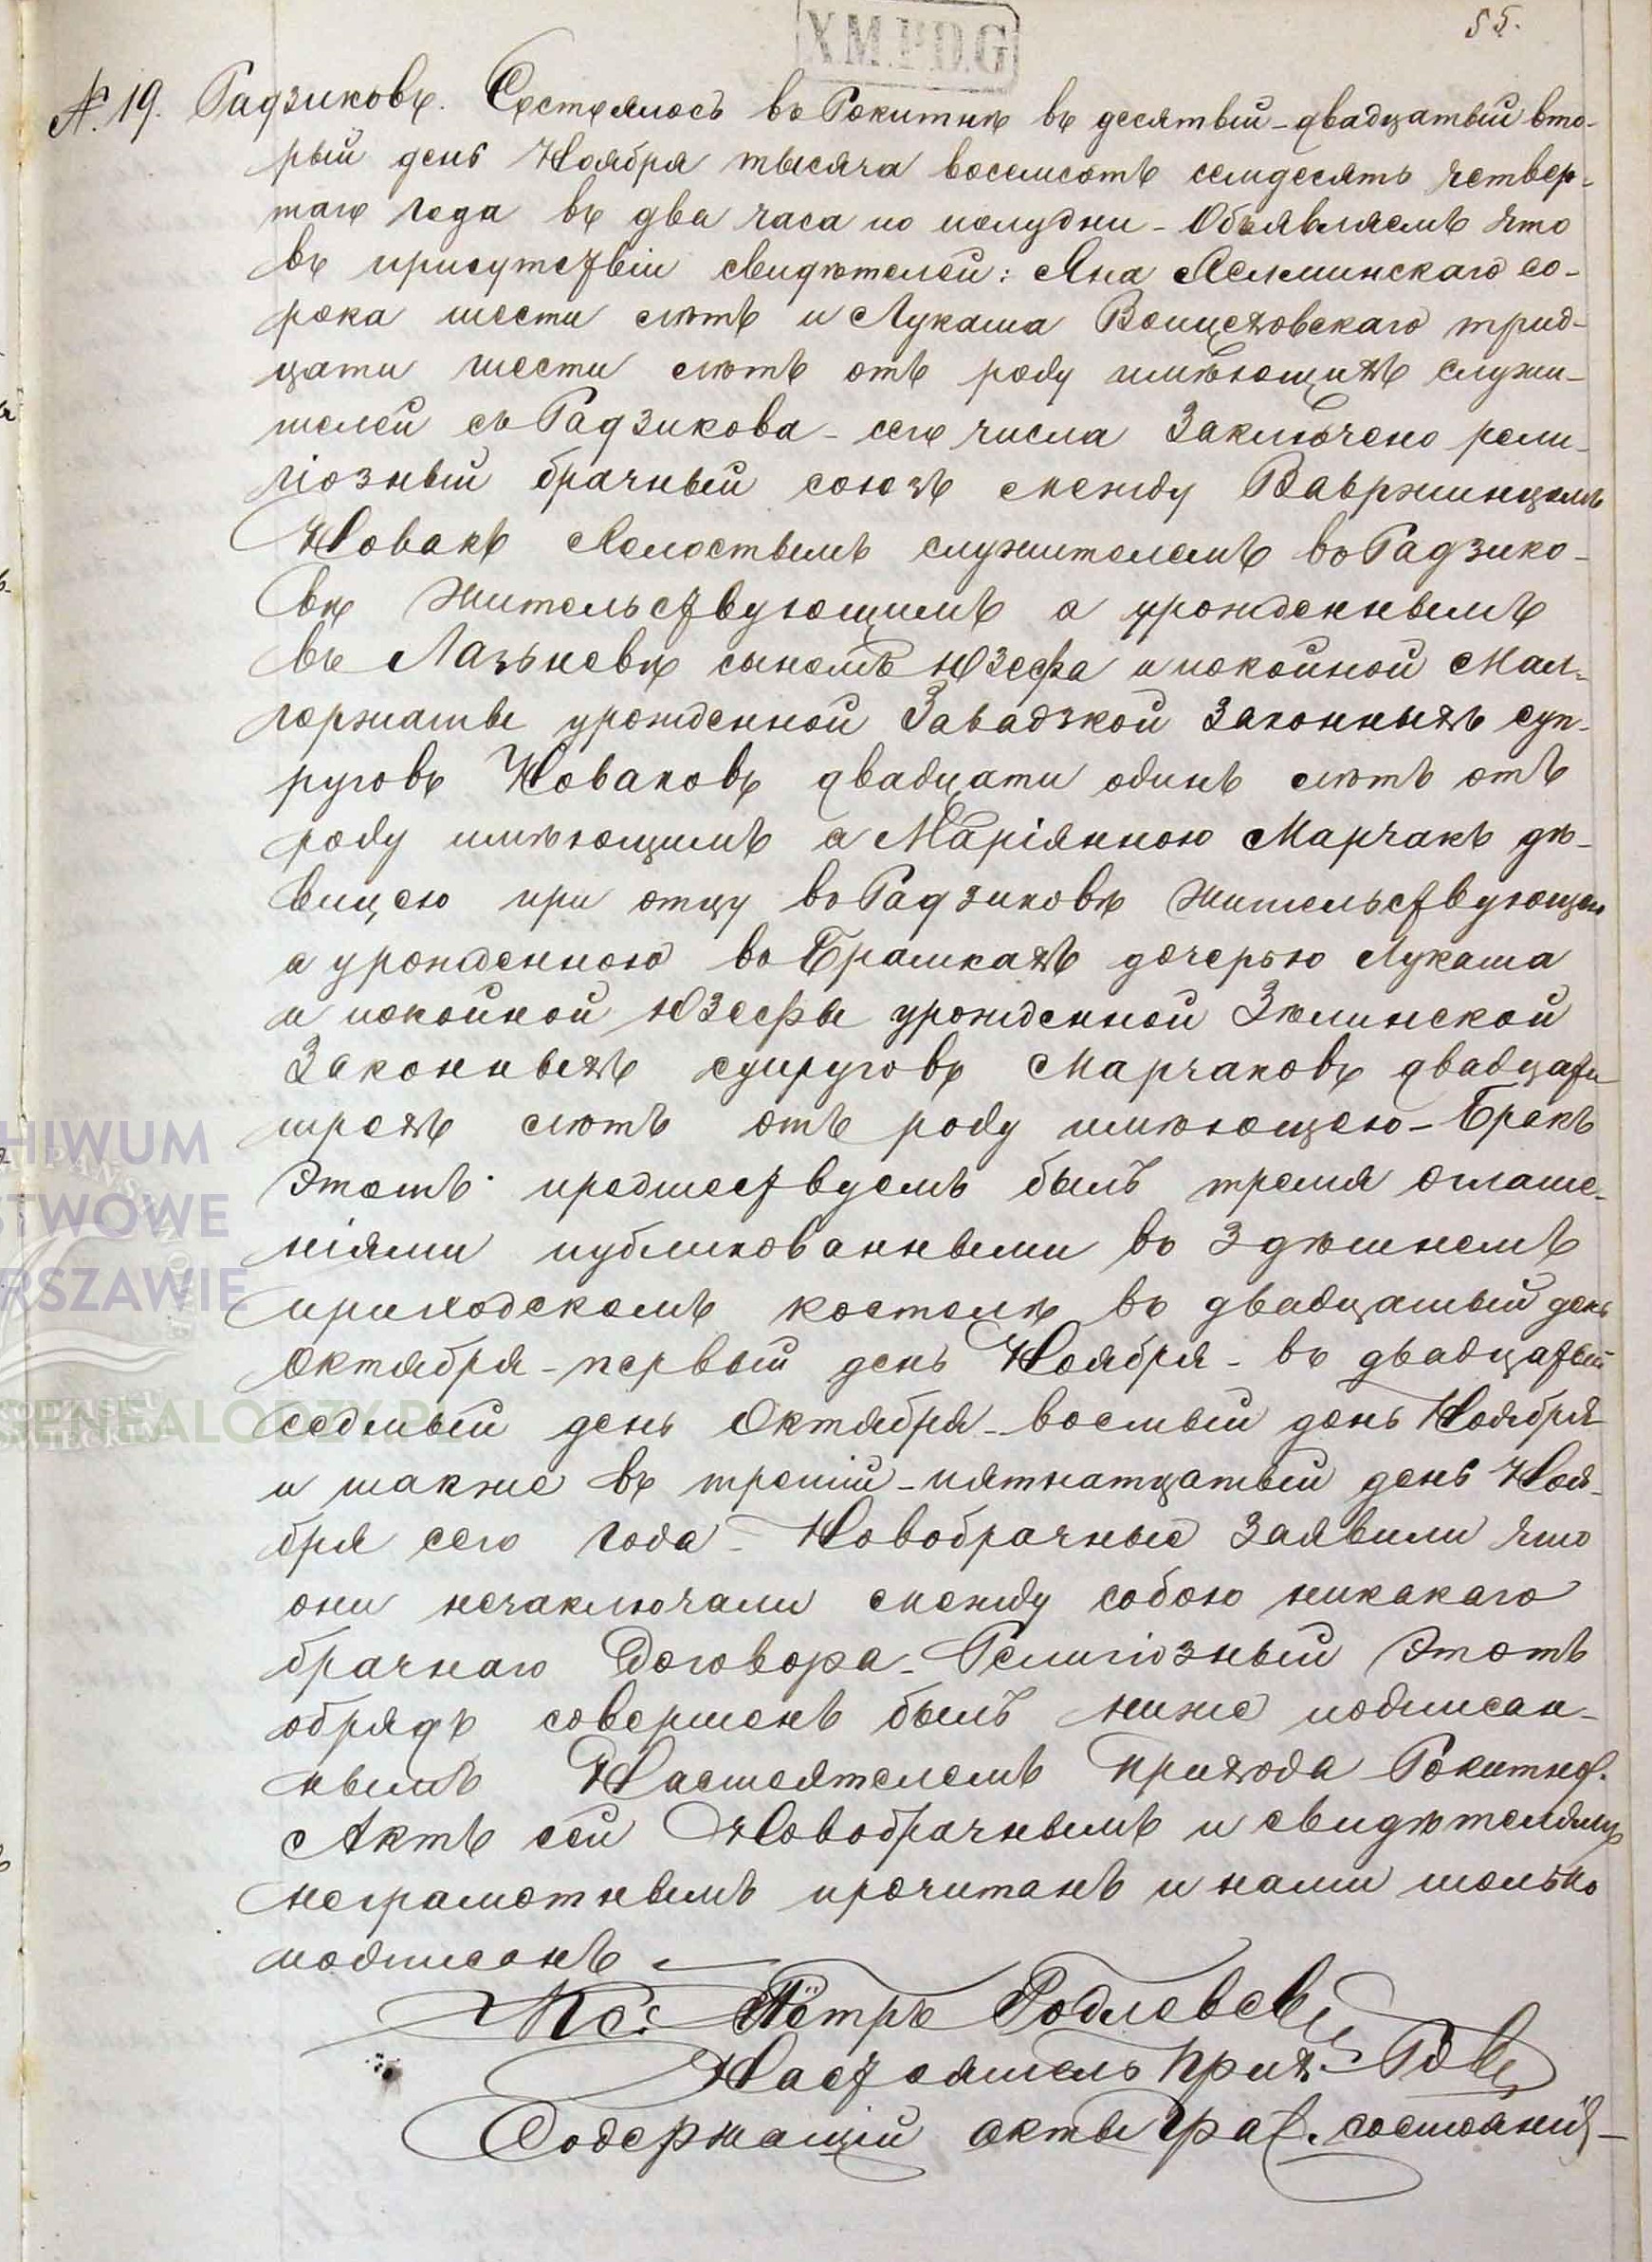 55.
X.M.P.D.G
№ 19. Радзиковъ. Состоялось въ Рокитнѣ въ десятый - двадцатый вто-
рый день Ноября тысяча восемсотъ семдесять четвер-
таго года въ два часа по полудни - Объявляемъ что
въ присутствіи свидѣтелей: Яна со-
рока шести лѣтъ и Лукаша Войцеховскаго трид-
цати шести лѣтъ отъ роду имѣющихъ служи-
телей съ Радзикова - сего числа Заключено рели-
гіозный брачный союзъ между Вавржинцемъ
Новакъ Холостымъ служителемъ въ Радзико-
вѣ жительствующимъ а урожденнымъ
въ Лазневѣ сыномъ Юзефа и покойной Мал-
горжаты урожденной Завадзкой Законныхъ суп-
руговъ Новаковъ двадцати одинъ лѣтъ отъ
роду имѣющимъ а Маріянною Марчакъ дѣ-
вицею при отцу въ Радзиковѣ жительствующею
а урожденною въ Брамкахъ дочерью Лукаша
и покойной Юзефы урожденной Зѣлинской
Законныхъ супруговъ Марчаковъ двадцати
трехъ лѣтъ отъ роду имѣющею - Бракъ
этотъ предшествуемъ былъ тремя оглаше-
ніями публикованными въ Здѣшнемъ
приходскомъ костелѣ въ двадцатый день
Октября - первый день Ноября - въ двадцатый
седмый день Октября - восмый день Ноября
и также въ третій - пятнатцатый день Ноя-
бря сего года - Новобрачные Заявили что
они незаключали между собою никакаго
брачнаго Договора - Религіозный этотъ
обрядъ совершенъ былъ ниже подписан-
нымъ Настоятелемъ Прихода Рокитно.
Актъ сей Новобрачнымъ и свидѣтелямъ
неграмотнымъ прочитанъ и нами только
подписанъ —
Кс: Пётръ
Настоятель Прих.
Содержащій акты Гра. состоянія -
ARCHIWUM
PAŃSTWOWE
WARSZAWIE
GENEALODZY.PL